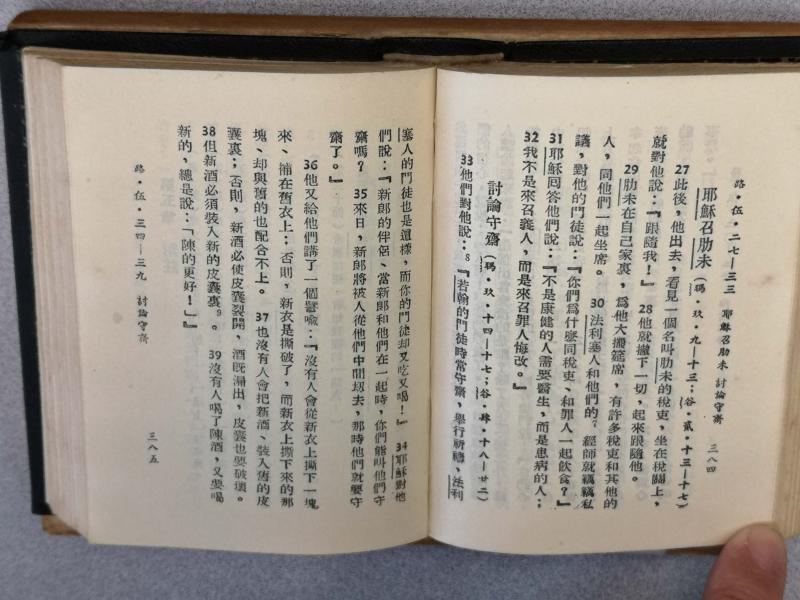 路・伍・二七—三三　耶穌召肋未　討論守齋　三八四
耶穌召肋未（瑪・玖・九—十三；谷・貳・十三—十七）
27此後，他出去，看見一個名叫肋未的稅吏，坐在稅關上，
就對他說：『跟隨我！』 28他就撇下一切，起來跟隨他。
29肋未在自己家裏，爲他大擺筵席，有許多稅吏和其他的
人，同他們一起坐席。 30法利塞人和他們的經師就竊竊私
議，對他的門徒說：『你們爲什麼同稅吏、和罪人一起飲食？』
31耶穌回答他們說：『不是康健的人需要醫生，而是患病的人；
32我不是來召義人，而是來召罪人悔改。』
討論守齋（瑪・玖・十四—十七；谷・貳・十八—廿二）
33他們對他說：『若翰的門徒時常守齋，舉行祈禱，法利
塞人的門徒也是這樣，而你的門徒却又吃又喝！』 34耶穌對他
們說：『新郎的伴侶、當新郎和他們在一起時，你們能叫他們守
齋嗎？ 35來日，新郎將被人從他們中間刼去，那時他們就要守
齋了。』
36他又給他們講了一個譬喩：『沒有人會從新衣上撕下一塊
來、補在舊衣上；否則，新衣是撕破了，而新衣上撕下來的那
塊、却與舊的也配合不上。 37也沒有人會把新酒、裝入舊的皮
囊裏；否則，新酒必使皮囊裂開，酒旣漏出，皮囊也要破壞。
38但新酒必須裝入新的皮囊裏。 39沒有人喝了陳酒，又要喝
新的，總是說：「陳的更好！」』
路・伍・三四—三九　討論守齋　三八五